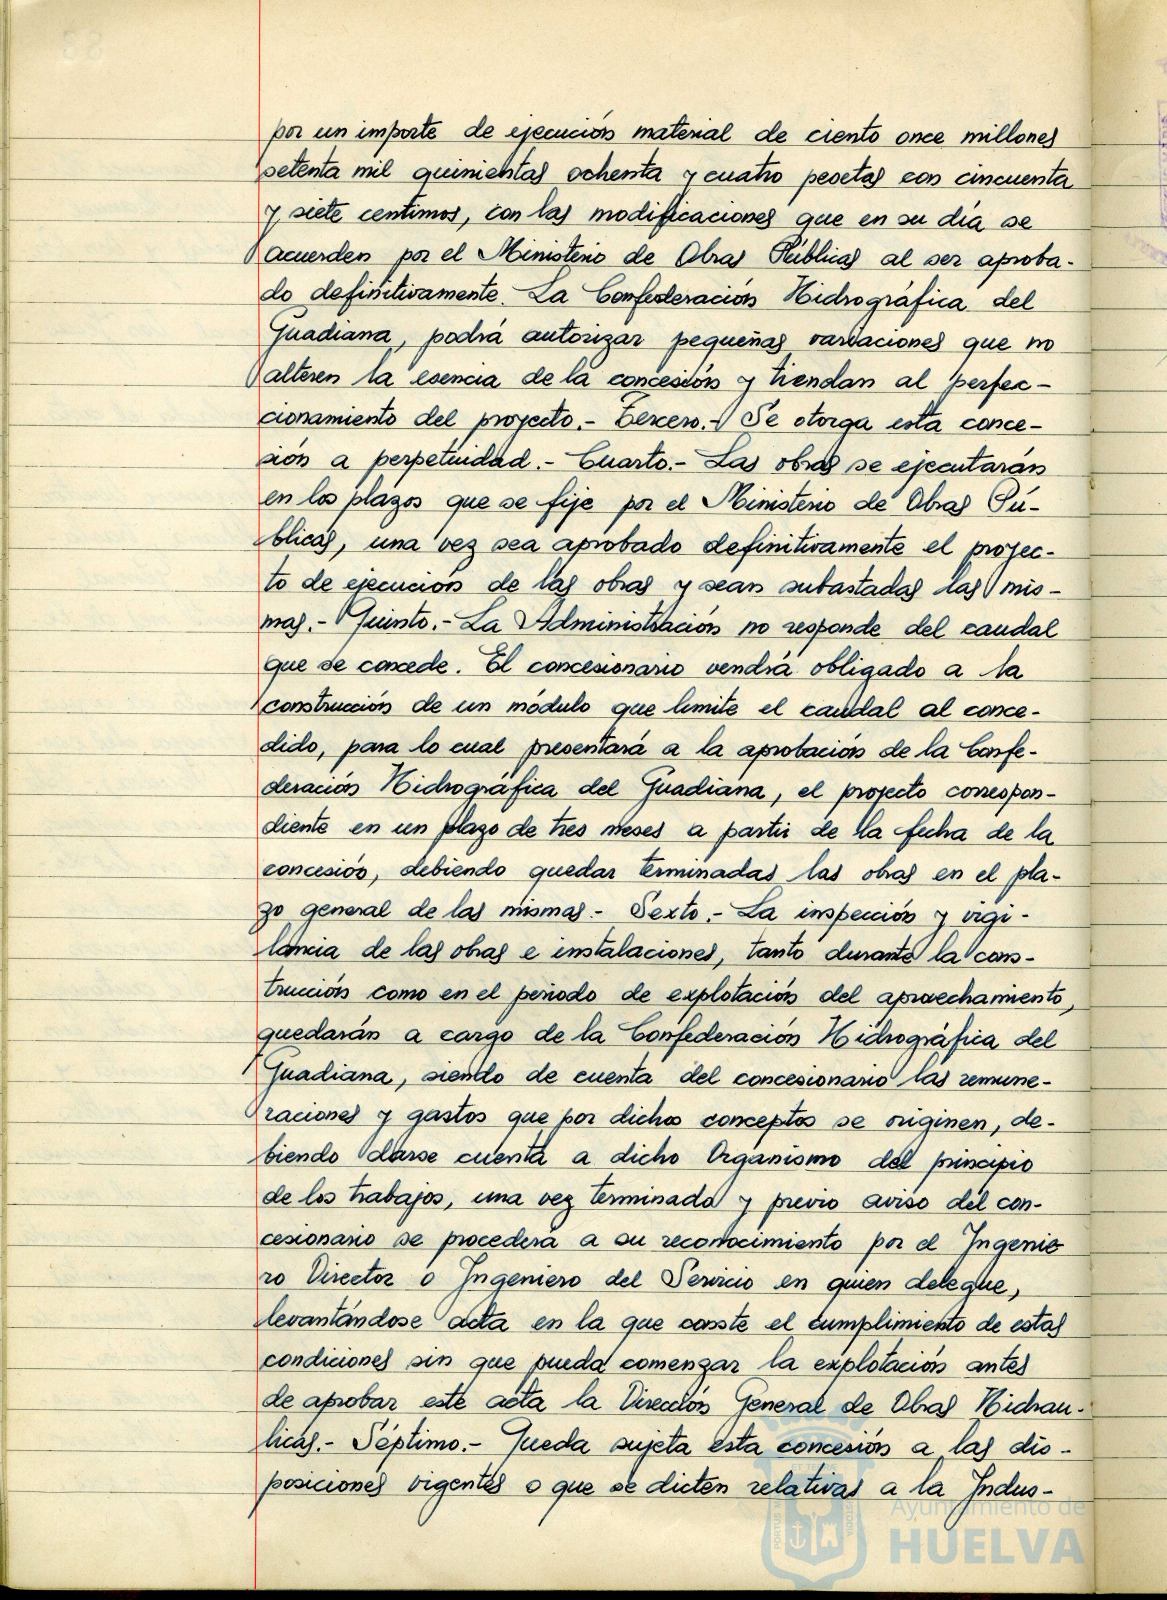 por un importe de ejecución material de ciento once millones
setenta mil quinientas ochenta y cuatro pesetas con cincuenta
y siete centimos, con las modificaciones que en su día se
acuerden por el Ministerio de Obras Públicas al ser aproba-
do definitivamente. La Confederación Hidrográfica del
Guadiana, podrá autorizar pequeñas variaciones que no
alteren la esencia de la concesión y tiendan al perfec-
cionamiento del proyecto.- Tercero.- Se otorga esta conce-
sión a perpetuidad.- Cuarto.- Las obras se ejecutarán
en los plazos que se fije por el Ministerio de Obras Pú-
blicas, una vez sea aprobado definitivamente el proyec-
to de ejecución de las obras y sean subastadas las mis-
mas.- Quinto.- La Administración no responde del caudal
que se concede. El concesionario vendrá obligado a la
construcción de un módulo que limite el caudal al conce-
dido, para lo cual presentará a la aprobación de la Confe-
deración Hidrográfica del Guadiana, el proyecto correspon-
diente en un plazo de tres meses a partir de la fecha de la
concesión, debiendo quedar terminadas las obras en el pla-
zo general de las mismas.- Sexto.- La inspección y vigi-
lancia de las obras e instalaciones, tanto durante la cons-
trucción como en el periodo de explotación del aprovechamiento,
quedarán a cargo de la Confederación Hidrográfica del
Guadiana, siendo de cuenta del concesionario las remune-
raciones y gastos que por dichos conceptos se originen, de-
biendo darse cuenta a dicho Organismo del principio
de los trabajos, una vez terminados y previo aviso del con-
cesionario se procederá a su reconocimiento por el Ingenie
ro Director o Ingeniero del Servicio en quien delegue,
levantándose acta en la que conste el cumplimiento de estas
condiciones sin que pueda comenzar la explotación antes
de aprobar este acta la Dirección General de Obras Hidrau-
licas.- Séptimo.- Queda sujeta esta concesión a las dis-
posiciones vigentes o que se dicten relativas a la Indus-
Ayuntamiento de
HUELVA